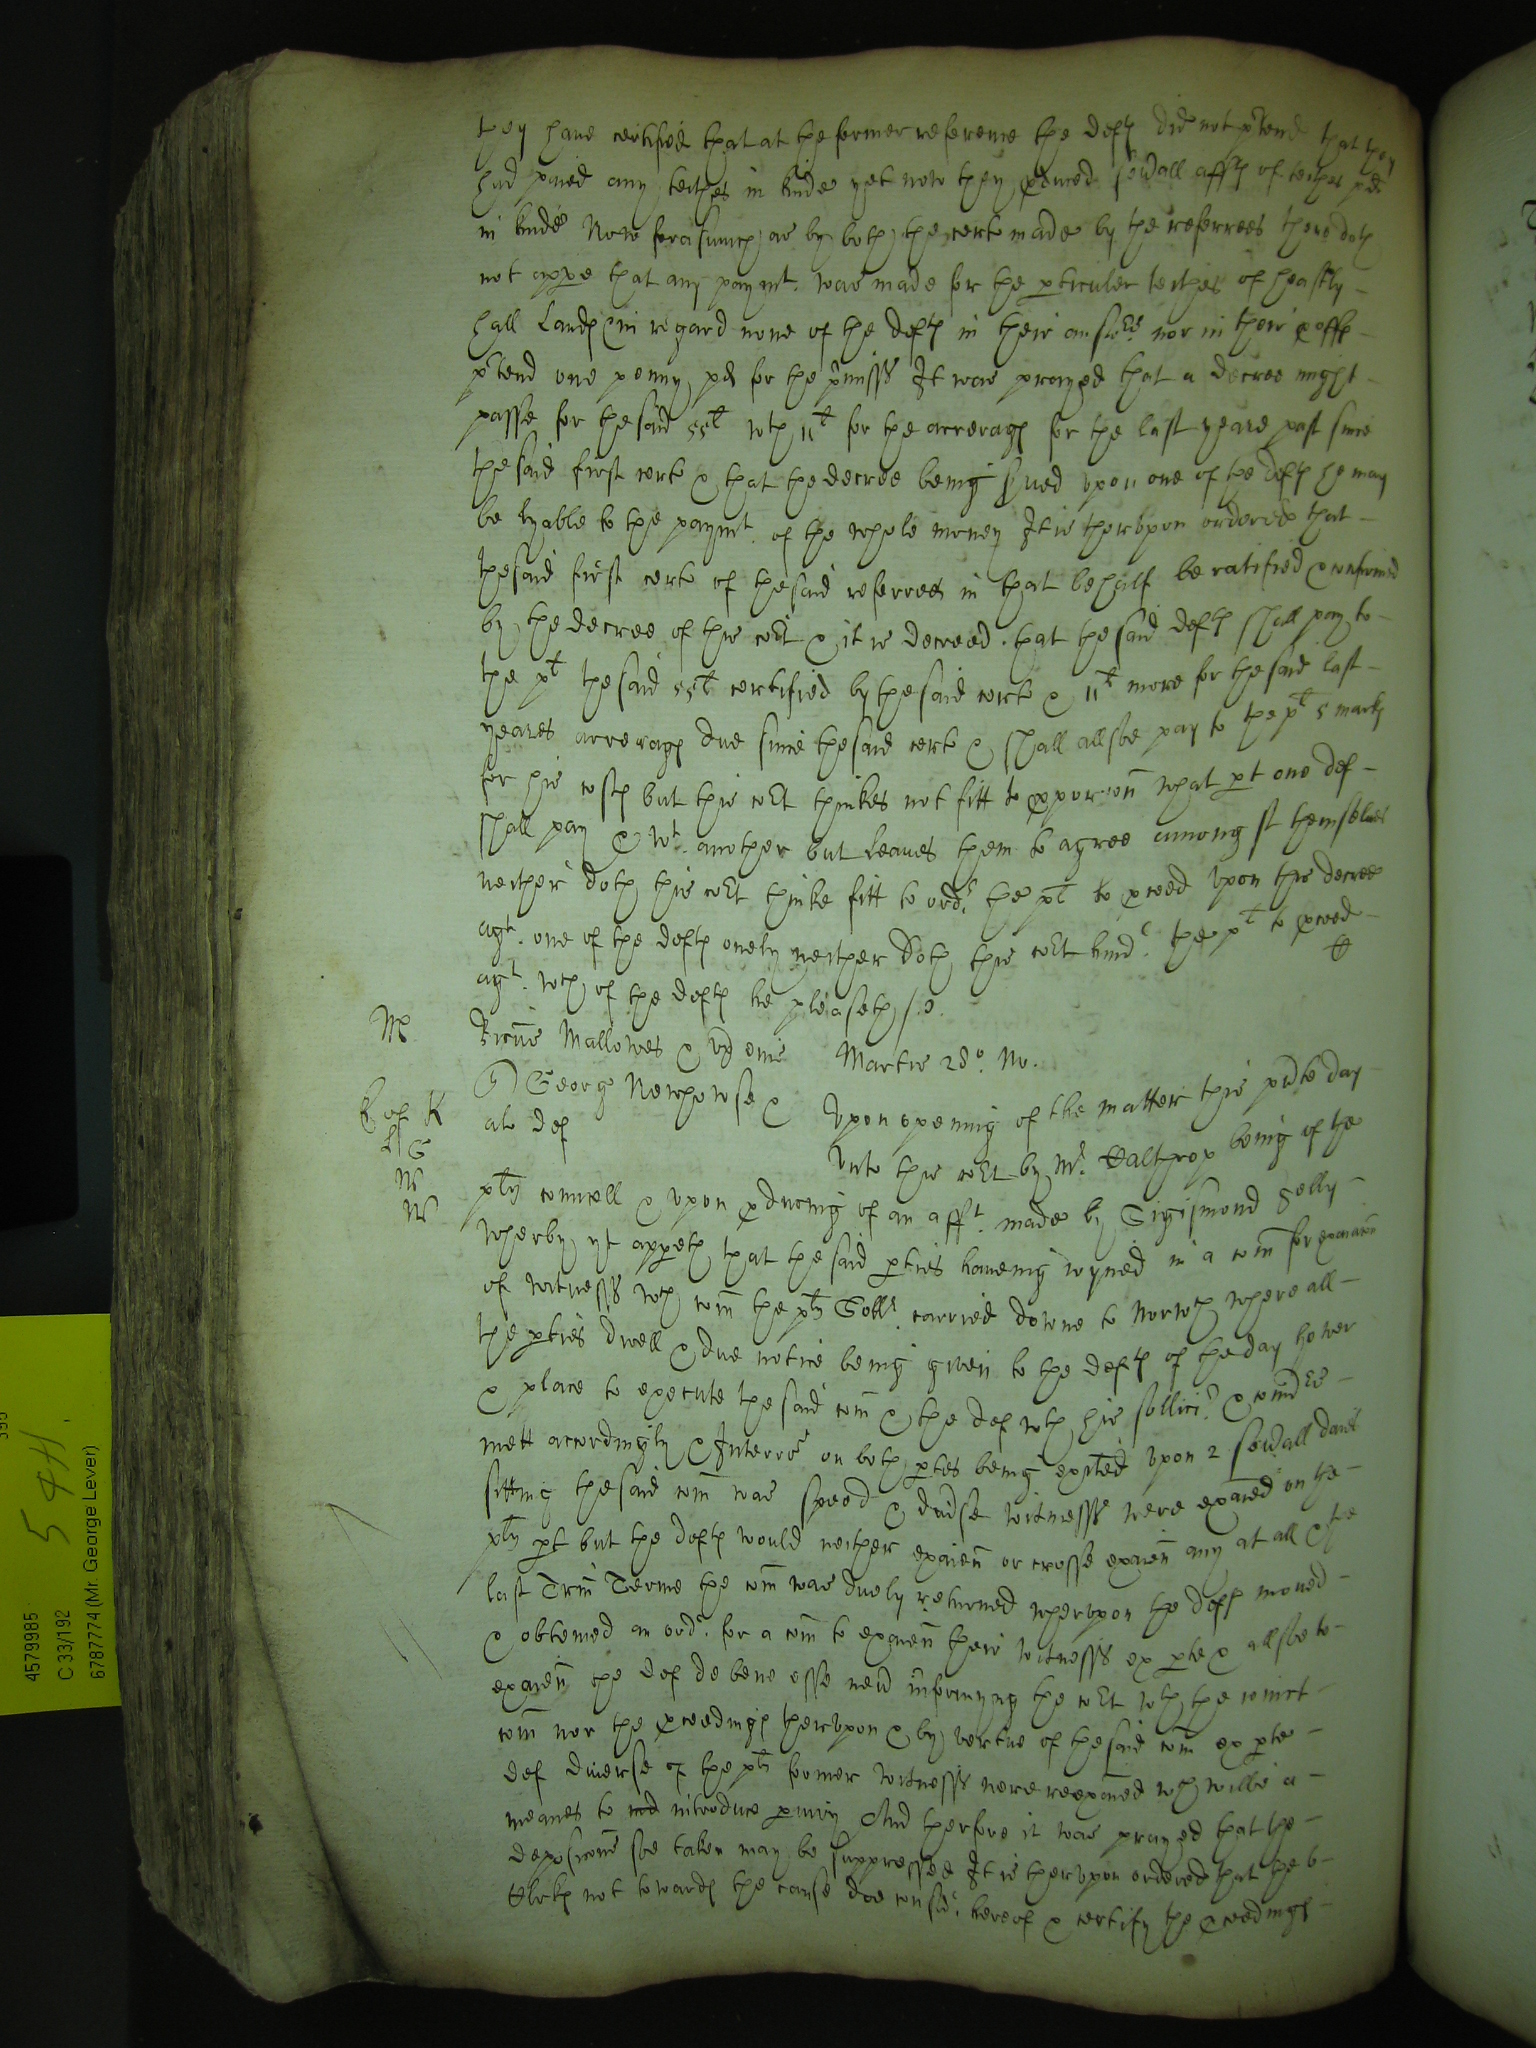 they haue certified that at the former reference the deftes did not p'tend that they
had paied any teithes in kinde yet now they p'duced seu'all affts of teithes pd
in kinde Now forasmuch as by both the certs made by the referrees there doth
not appe that any paymt. was made for the p'ticuler teithes of heastly
hall Landes & in regard none of the deftes in their answers nor in their
p'tend one penny pd for the p'misses It was prayed that a decree might
passe for the said 55l wth 11l for the arrerages for the last yeare past since
the said first cert & that the decree being s'ued vpon one of the deftes he may
be lyable to the paymt. of the whole money It is thervpon ordered that
the said first cert of the said referrees in that behalf be ratified & confirmed
by the decree of this cort & it is decreed that the said deftes shall pay to
the plt the said 55l certified by the said cert & 11l more for the said last
yeares arrerages due since the said cert & shall allsoe pay to the plt 5 markes
for his costes but this cort thinkes not fitt to p'porcon what p't one def
shall pay & wt. another but leaues them to agree amongst themselues
neither doth this cort thinke fitt to ordr. the plt to p'ceed vpon this decree
agt. one of the deftes onely neither doth this cort hindr. the plt to p'ceed
agt. wch of the deftes he pleaseth
Mallowes & ux Martis 2do. No.
George Newhowse &
al def Vpon opening of the matter this p'nte day
R of K vnto this cort by Mr. Calthrop being of the
plts councell & vpon p'ducing of an afft. made by Sigismond
wherby yt appeth that the said p'ties haueing ioyned in a com for exaiacon
of witnesses wch com the plts carried downe to Norwch where all
the p'ties dwell & due notice being given to the deftes of the day hower
& place to execute the said com & the def wth his sollicr. & comrs
mett accordingly & Interrs on both p'tes being exhited vpon 2 seu'all daies
sitting the said com was speed & diu'se witnesses were exaied on the
plts p't but the deftes would neither exaien or crosse exaien any at all & the
last Trin Terme the com was duely returned wherevpon the deftes moued
& obteined an ordr. for a com to exaien their witnesses ex p'te & allsoe to
exaien the def de bene esse neu' informyng the cort wth the ioinct
com nor the p'ceedinges thervpon & by vertue of the said com ex p'te
def diuerse of the plts former witnesses were reexaied wch wilbe a
meanes to introduce p'iury And therfore it was prayed that the
deposicons soe taken may be suppressed It is thervpon ordered that the 6
Clrkes not towardes the cause doe consider hereof & certify the p'ceedinges
4579985
C 33/192
6787774 (Mr. George Lever)